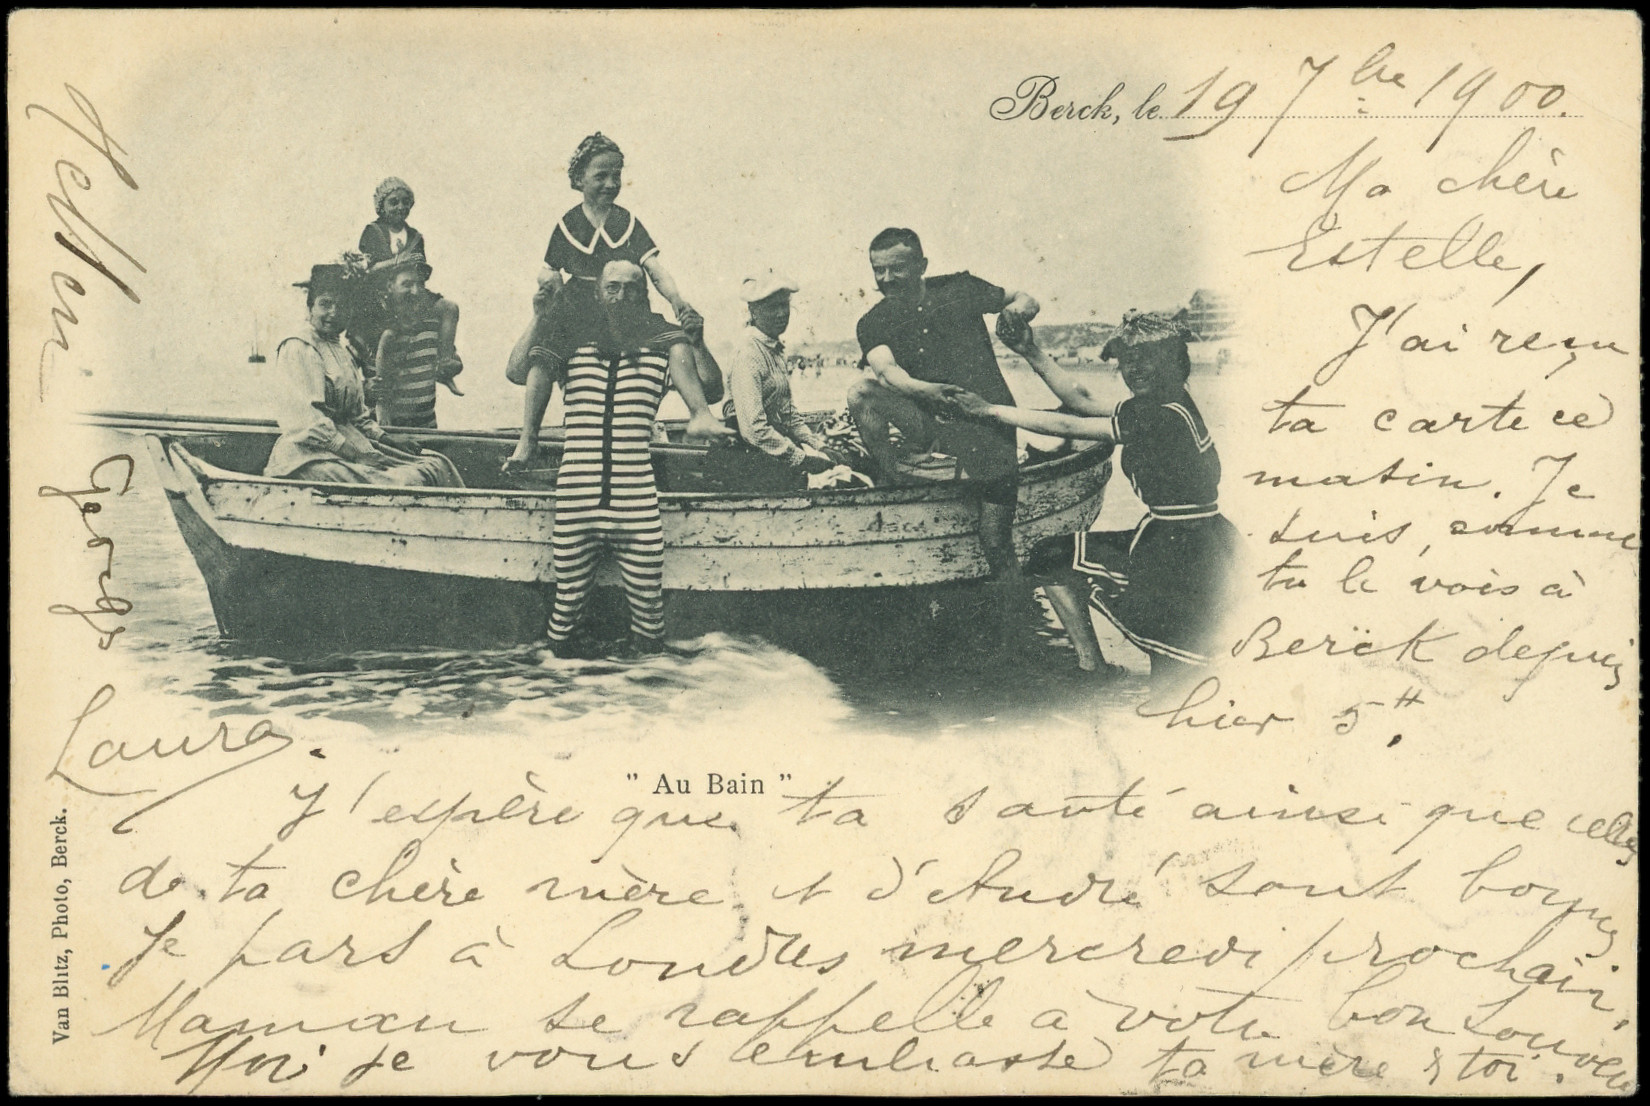 Berck, le 19 7bre 1900.
Ma chère
Estelle,
J'ai reçu
ta carte ce
matin. Je
suis, comme
tu le vois à
Berck depuis
hier 5H.
" Au Bain "
J'espère que ta santé ainsi que celles
de ta chère mère et d'André sont bonnes
Je pars à Londres mercredi prochain.
Maman se rappelle à votre bon souvenir
Moi je vous embrasse ta mère & toi.
Laura.
Van Blitz, Photo, Berck.